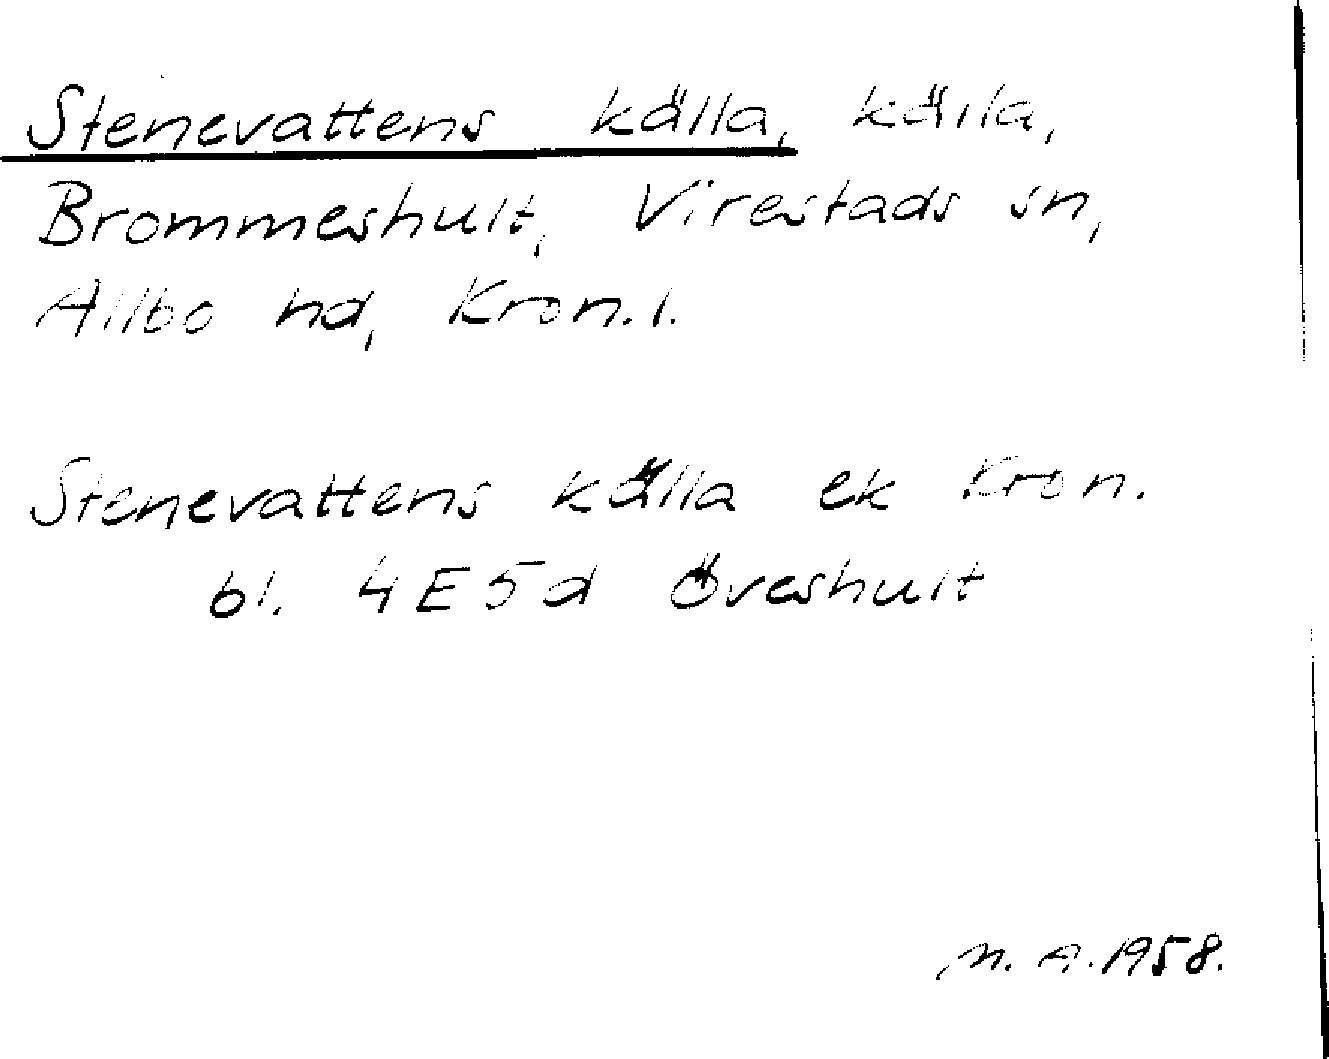 Stenevattens källa, källa,
Brommeshult, Virestads sn,
Allbo hd, Kron.l.
Stenevattens källa ek Kron.
bl. 4E5d Öveshult
M.A. 1958.